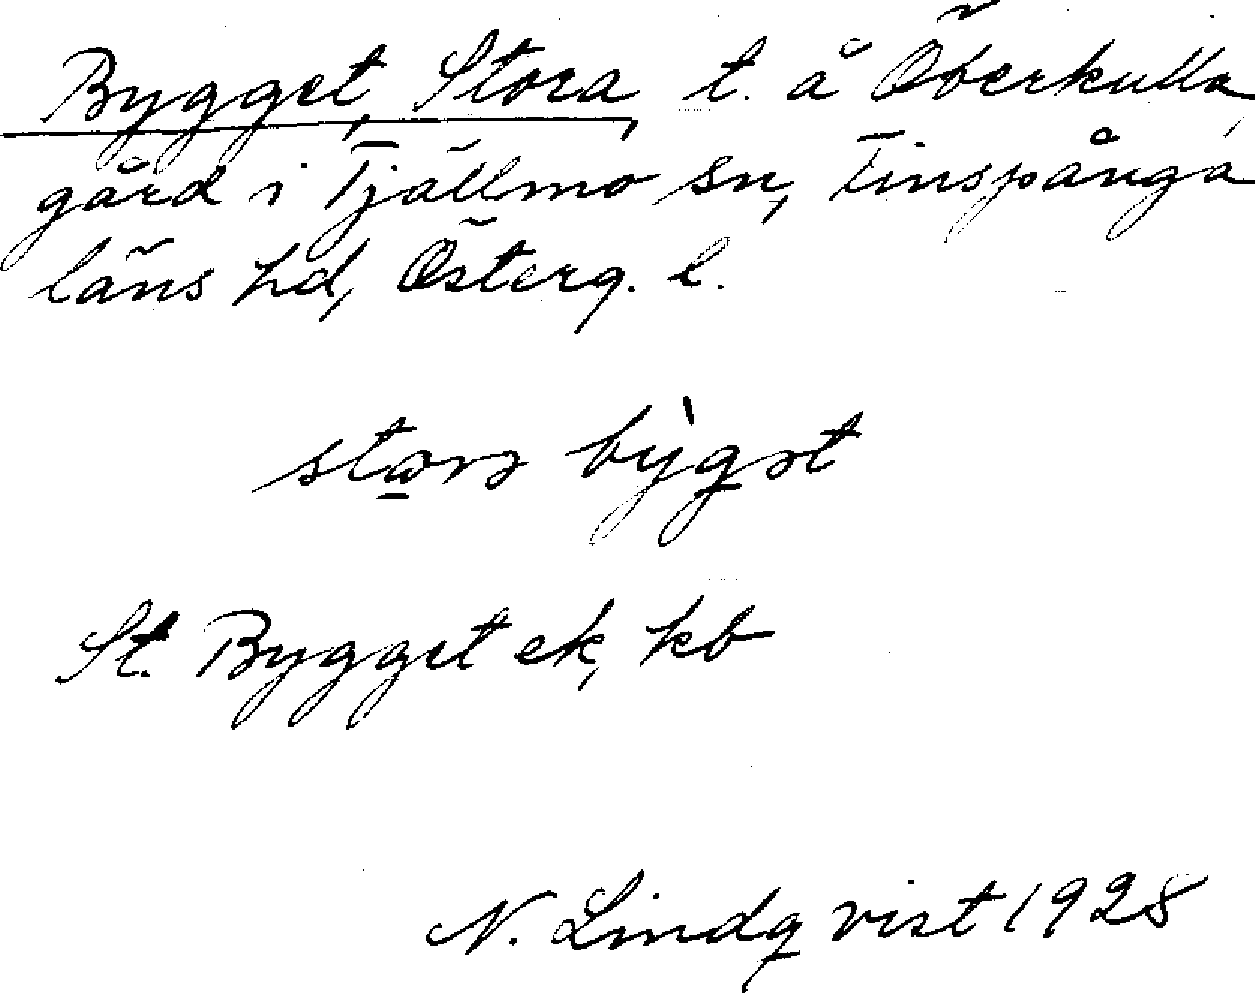 Bygget, Stora, t. å Öberkulla,
gård i Tjällmo sn, Finspånga
läns hd, Österg. l.
St. Bygget ek, kb
N. Lindqvist 1928